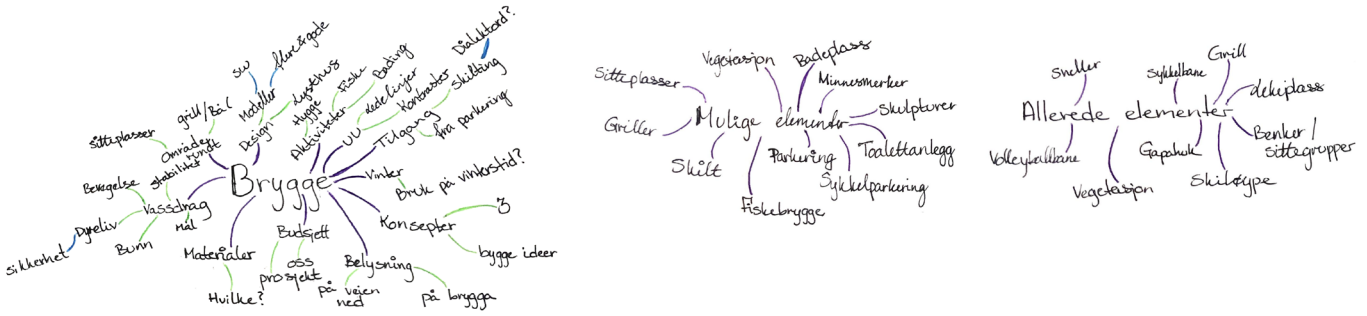 Brygge
Området
rundt
sitteplasser
grill/Bål
Design
Modeller
sw
flere & gode
Lysthus
Aktiviteter
Hygge
Fiske
Bading
UU
Ledelinjer
Kontraster
Tilgang
Skilting
Dialektord?
fra parkering
Vinter
Bruk på vinterstid?
Konsepter
3
bygge ideer
Belysning
på veien
ned
på brygga
Budsjett
prosjekt
oss
Materialer
Hvilke?
Vassdrag
stabilitet
Mål
Bevegelse
Dyreliv
sikkerhet
Bunn
Mulige elementer
Sitteplasser
Vegetasjon
Badeplass
Minnesmerker
Skulpturer
Toalettanlegg
Sykkelparkering
Parkering
Fiskebrygge
Skilt
Griller
Allerede elementer
Sneller
Sykkelbane
Grill
lekeplass
Benker /
sittegrupper
Gapahuk
Vegetasjon
Volleyballbane